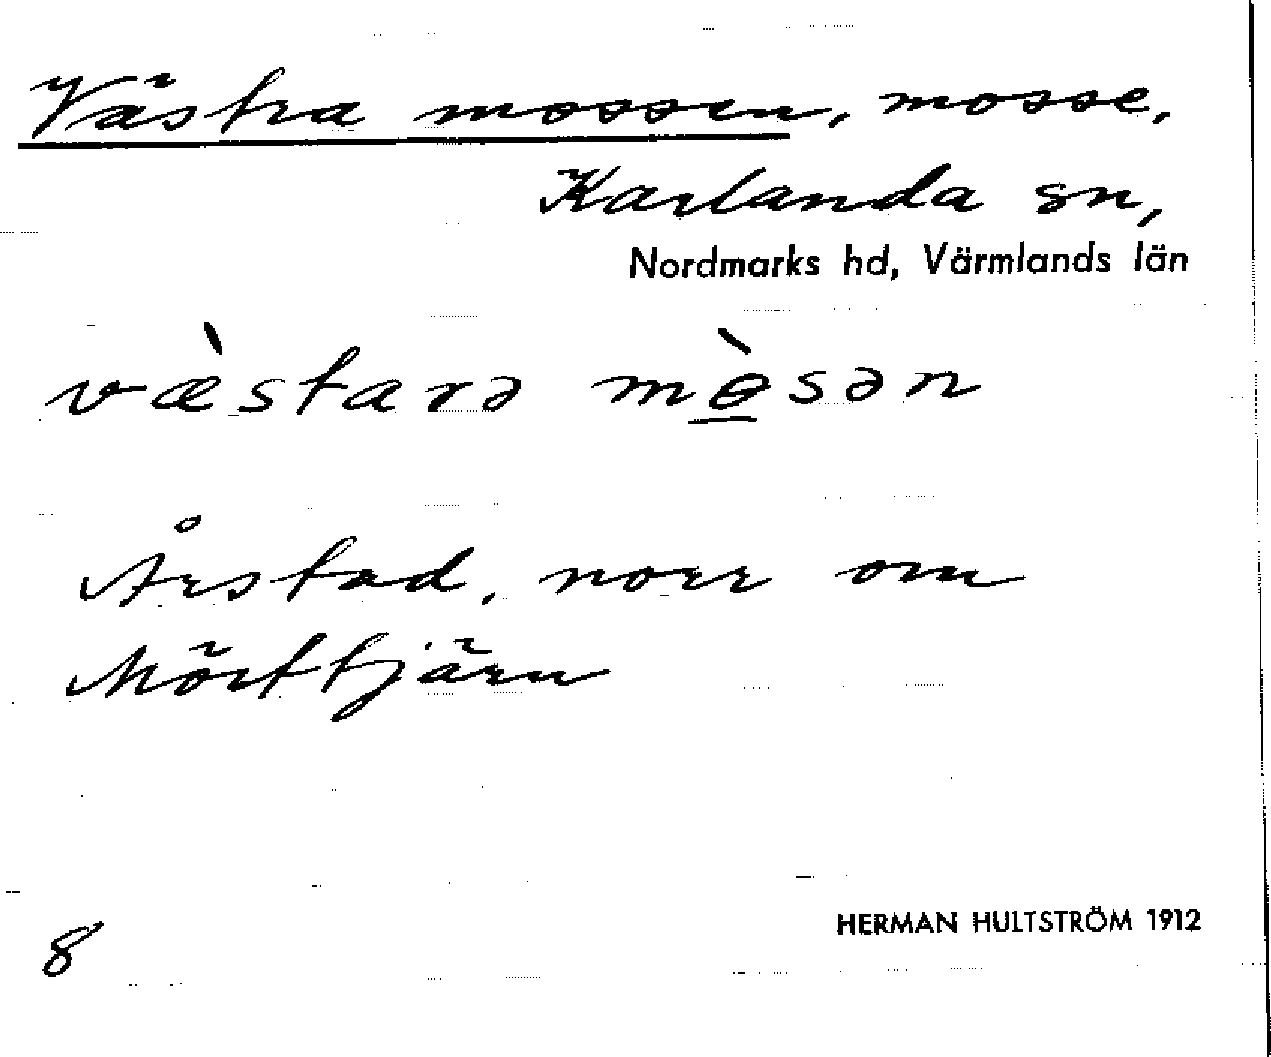 Västra mossen, mosse,
Karlanda sn,
Nordmarks hd, Värmlands län
væ̀starə mɵ̠̀sən
Årstad, norr om
Mörttjärn
HERMAN HULTSTRÖM 1912
8